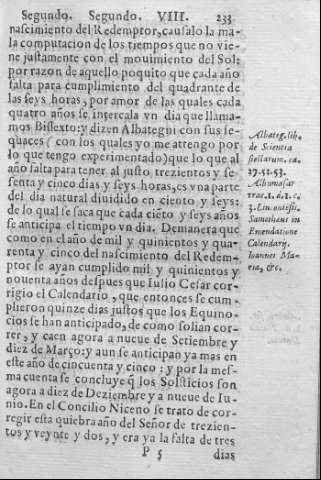 Segundo. Segundo. VIII. 233
nascimiento del Redemptor, causalo la ma-
la computacion de los tiempos que no vie-
ne justamente con el mouimiento del Sol:
por razon de aquello poquito que cada año
falta para cumplimiento del quadrante de
las seys horas, por amor de las quales cada
quatro años se intercala vn dia que llama-
mos Bissexto: y dizen Albategni con sus se-
quaces ( con los quales yo me attengo por
lo que tengo experimentado) que lo que al
año falta para tener al justo, trezientos y se-
senta y cinco dias y seys horas, es vna parte
del dia natural diuidido en ciento y seys:
de lo qual se saca que cada ciẽto y seys años
se anticipa el tiempo vn dia. Demanera que
como en el año de mil y quinientos y qua-
renta y cinco del nascimiento del Redem-
ptor se ayan cumplido mil y quinientos y
nouenta años despues que Iulio Cesar cor-
rigio el Calendario, que entonces se cum-
plieron quinze dias justos que los Equino-
cios se han anticipado, de como solian cor-
rer, y caen agora a nueue de Setiembre y
diez de Março: y aun se anticipan ya mas en
este año de cincuenta y cinco: y por la mes-
ma cuenta se concluye q̃ los Solsticios son
agora a diez de Deziembre y a nueue de Iu-
nio. En el Concilio Niceno se trato de cor-
regir esta quiebra año del Señor de trezien-
tos y veynte y dos, y era ya la falta de tres
P 5 dias
Albateg. lib.
de Scientia
stellarum. ca.
27. 51. 53.
Albumasar
trac. 1. d. 1. c.
3. Lm. antesis.
Samotheus in
Emendatione
Calendarij.
Ioannes Ma-
ria, &c.